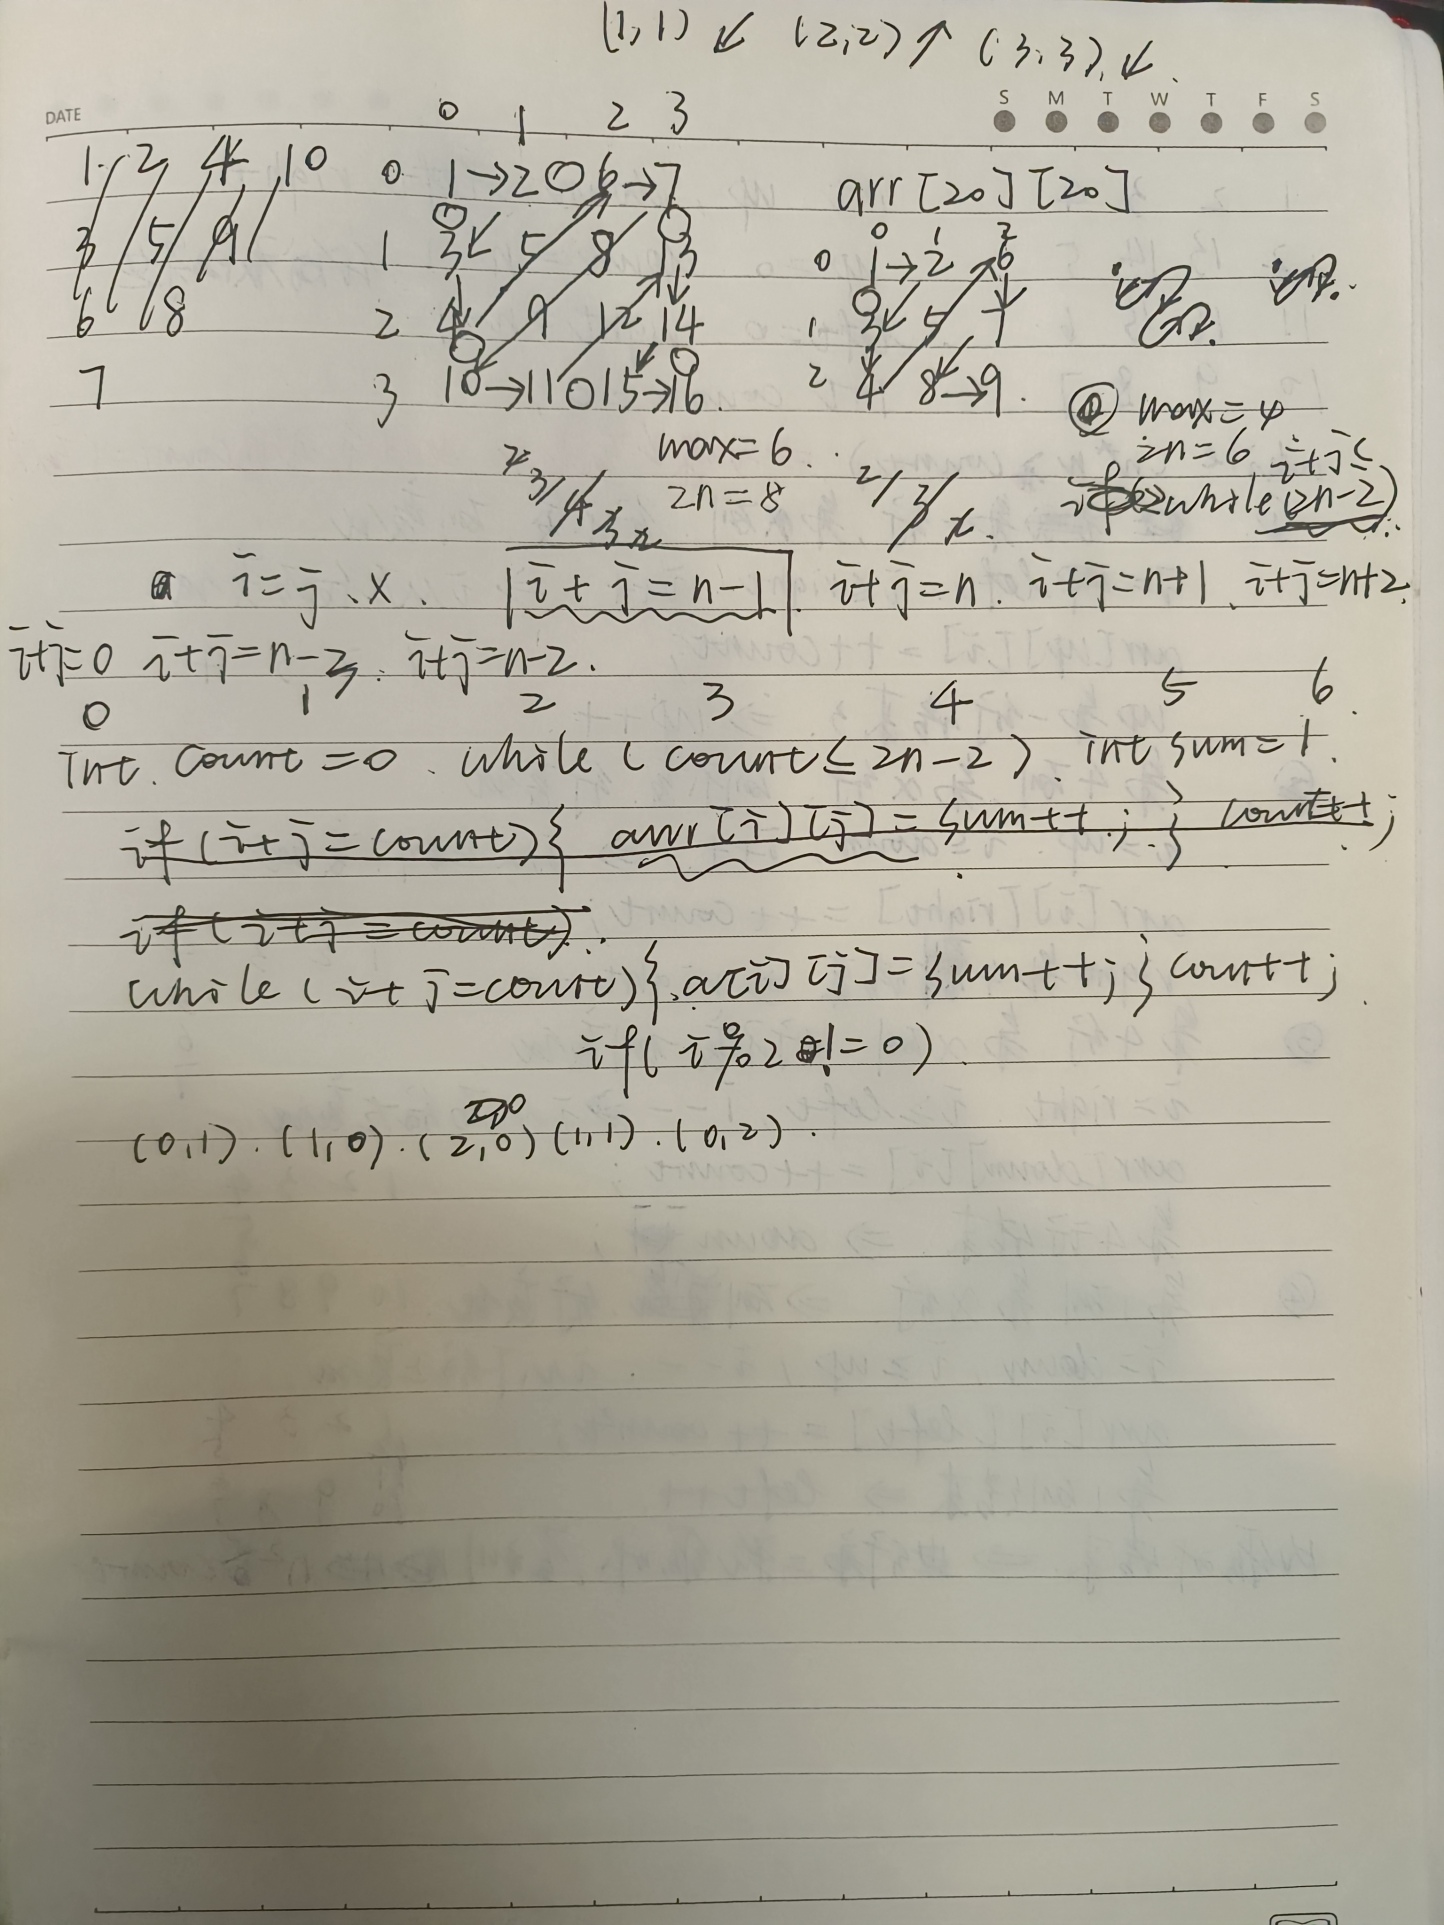 (1,1) ↙ (2,2) ↗ (3,3) ↙
DATE
S M T W T F S
0 1 2 3
1 2 4 10
0 1→2 6→7
arr[20][20]
3 5 9
1 3 5 8 13
0 1 2
0 1→2 6
6 8
2 4 9 12 14
1 3 5 7
7
3 10→11 15→16
2 4 8→9
max=4
max=6
2n=6 i+j≤
2 3 4 3 2
2n=8
2 3 2
while(2n-2)
i=j x
i+j=n-1
i+j=n i+j=n+1 i+j=n+2
i+j=0 i+j=n-3 i+j=n-2
0 1 2 3 4 5 6
int count=0 while(count≤2n-2) int sum=1
if(i+j=count){ arr[i][j]=sum++; } count++;
if(i+j=count)
while(i+j=count){ a[i][j]=sum++;} count++;
if(i%2 !=0)
(0,1).(1,0).(2,0)(1,1).(0,2).